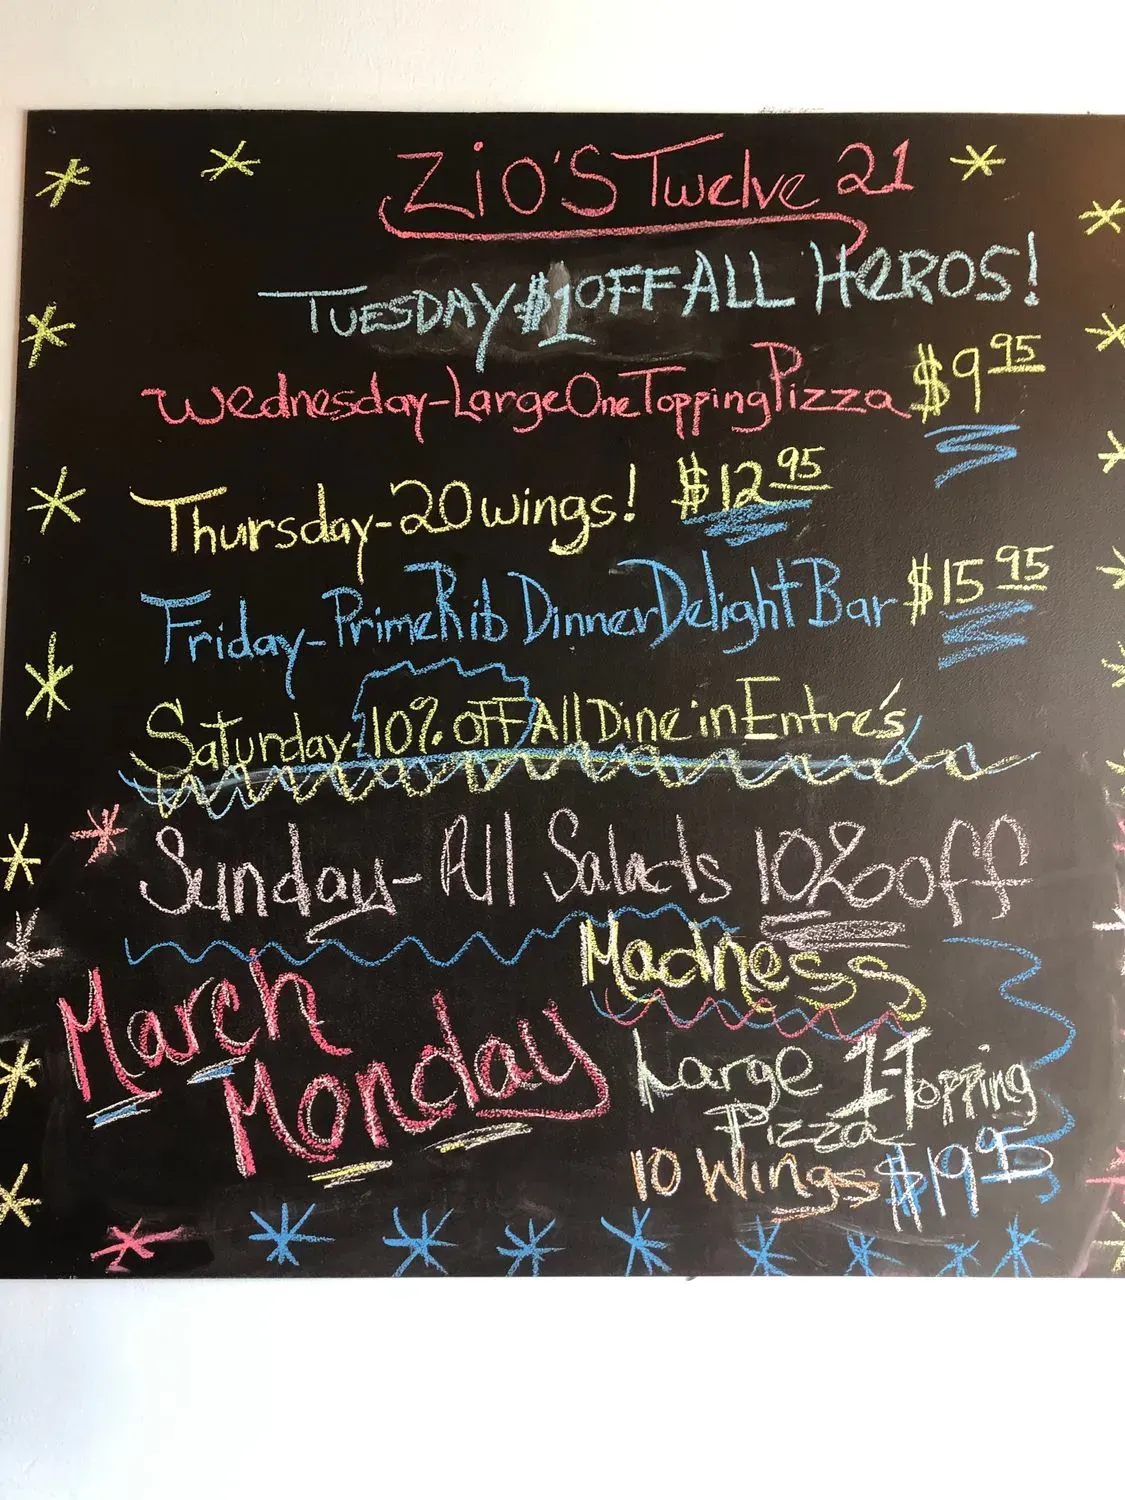 ZiO'S Twelve 21
TUESDAY $1 OFF ALL HeROS!
Wednesday-Large One Topping Pizza $9.95
Thursday-20 wings! $12.95
Friday-Prime Rib Dinner Delight Bar $15.95
Saturday-10% OFF All Dine in Entre's
Sunday-All Salads 10% off
March Monday
Madness
Large 1-Topping
Pizza
10 Wings $19.95